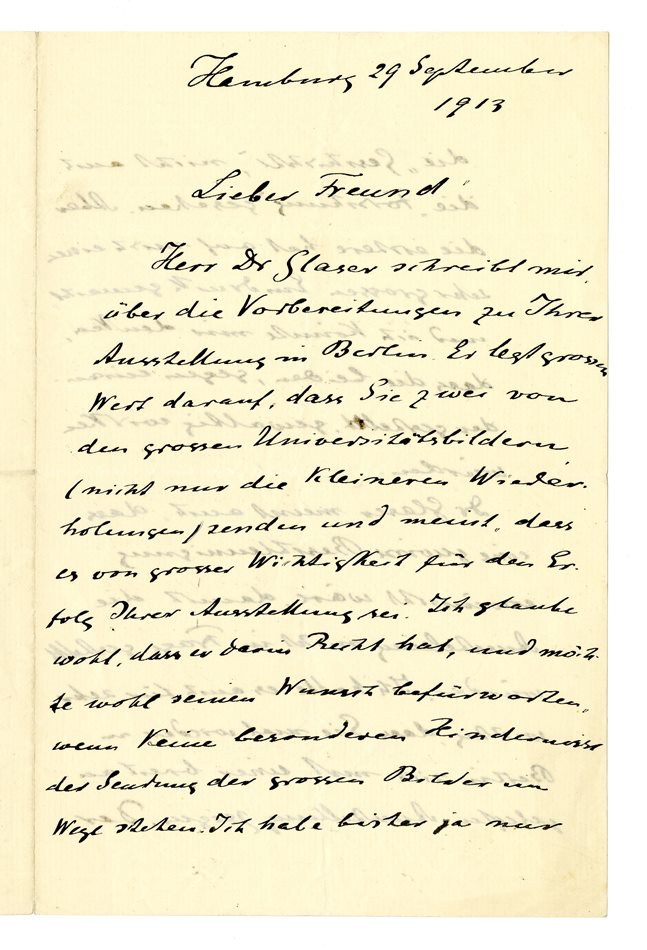 Hamburg 29 September
1913
Lieber Freund
Herr Dr Glaser schreibt mir
über die Vorbereitungen zu Ihrer
Ausstellung in Berlin. Er legt grossen
Wert darauf, dass Sie zwei von
den grossen Universitätsbildern
(nicht nur die Kleineren Wieder-
holungen) senden und meint, dass
es von grosser Wichtigkeit für den Er-
folg Ihrer Ausstellung sei. Ich glaube
wohl, dass er darin Recht hat, und möch-
te wohl seinen Wunsch befürworten,
wenn keine besonderen Hindernisse
der Sendung der grossen Bilder im
Wege stehen. Ich habe bisher ja nur